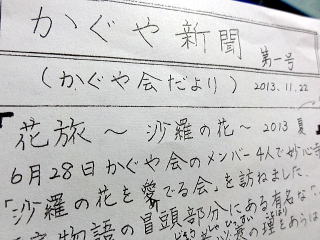 かぐや新聞 第一号
(かぐや会だより) 2013.11.22
花旅 ~ 沙羅の花 ~ 2013 夏
6月28日かぐや会のメンバー4人で妙心寺
「沙羅の花を愛でる会」を訪ねました。
物語の冒頭部分にある有名な"
の理をあらは